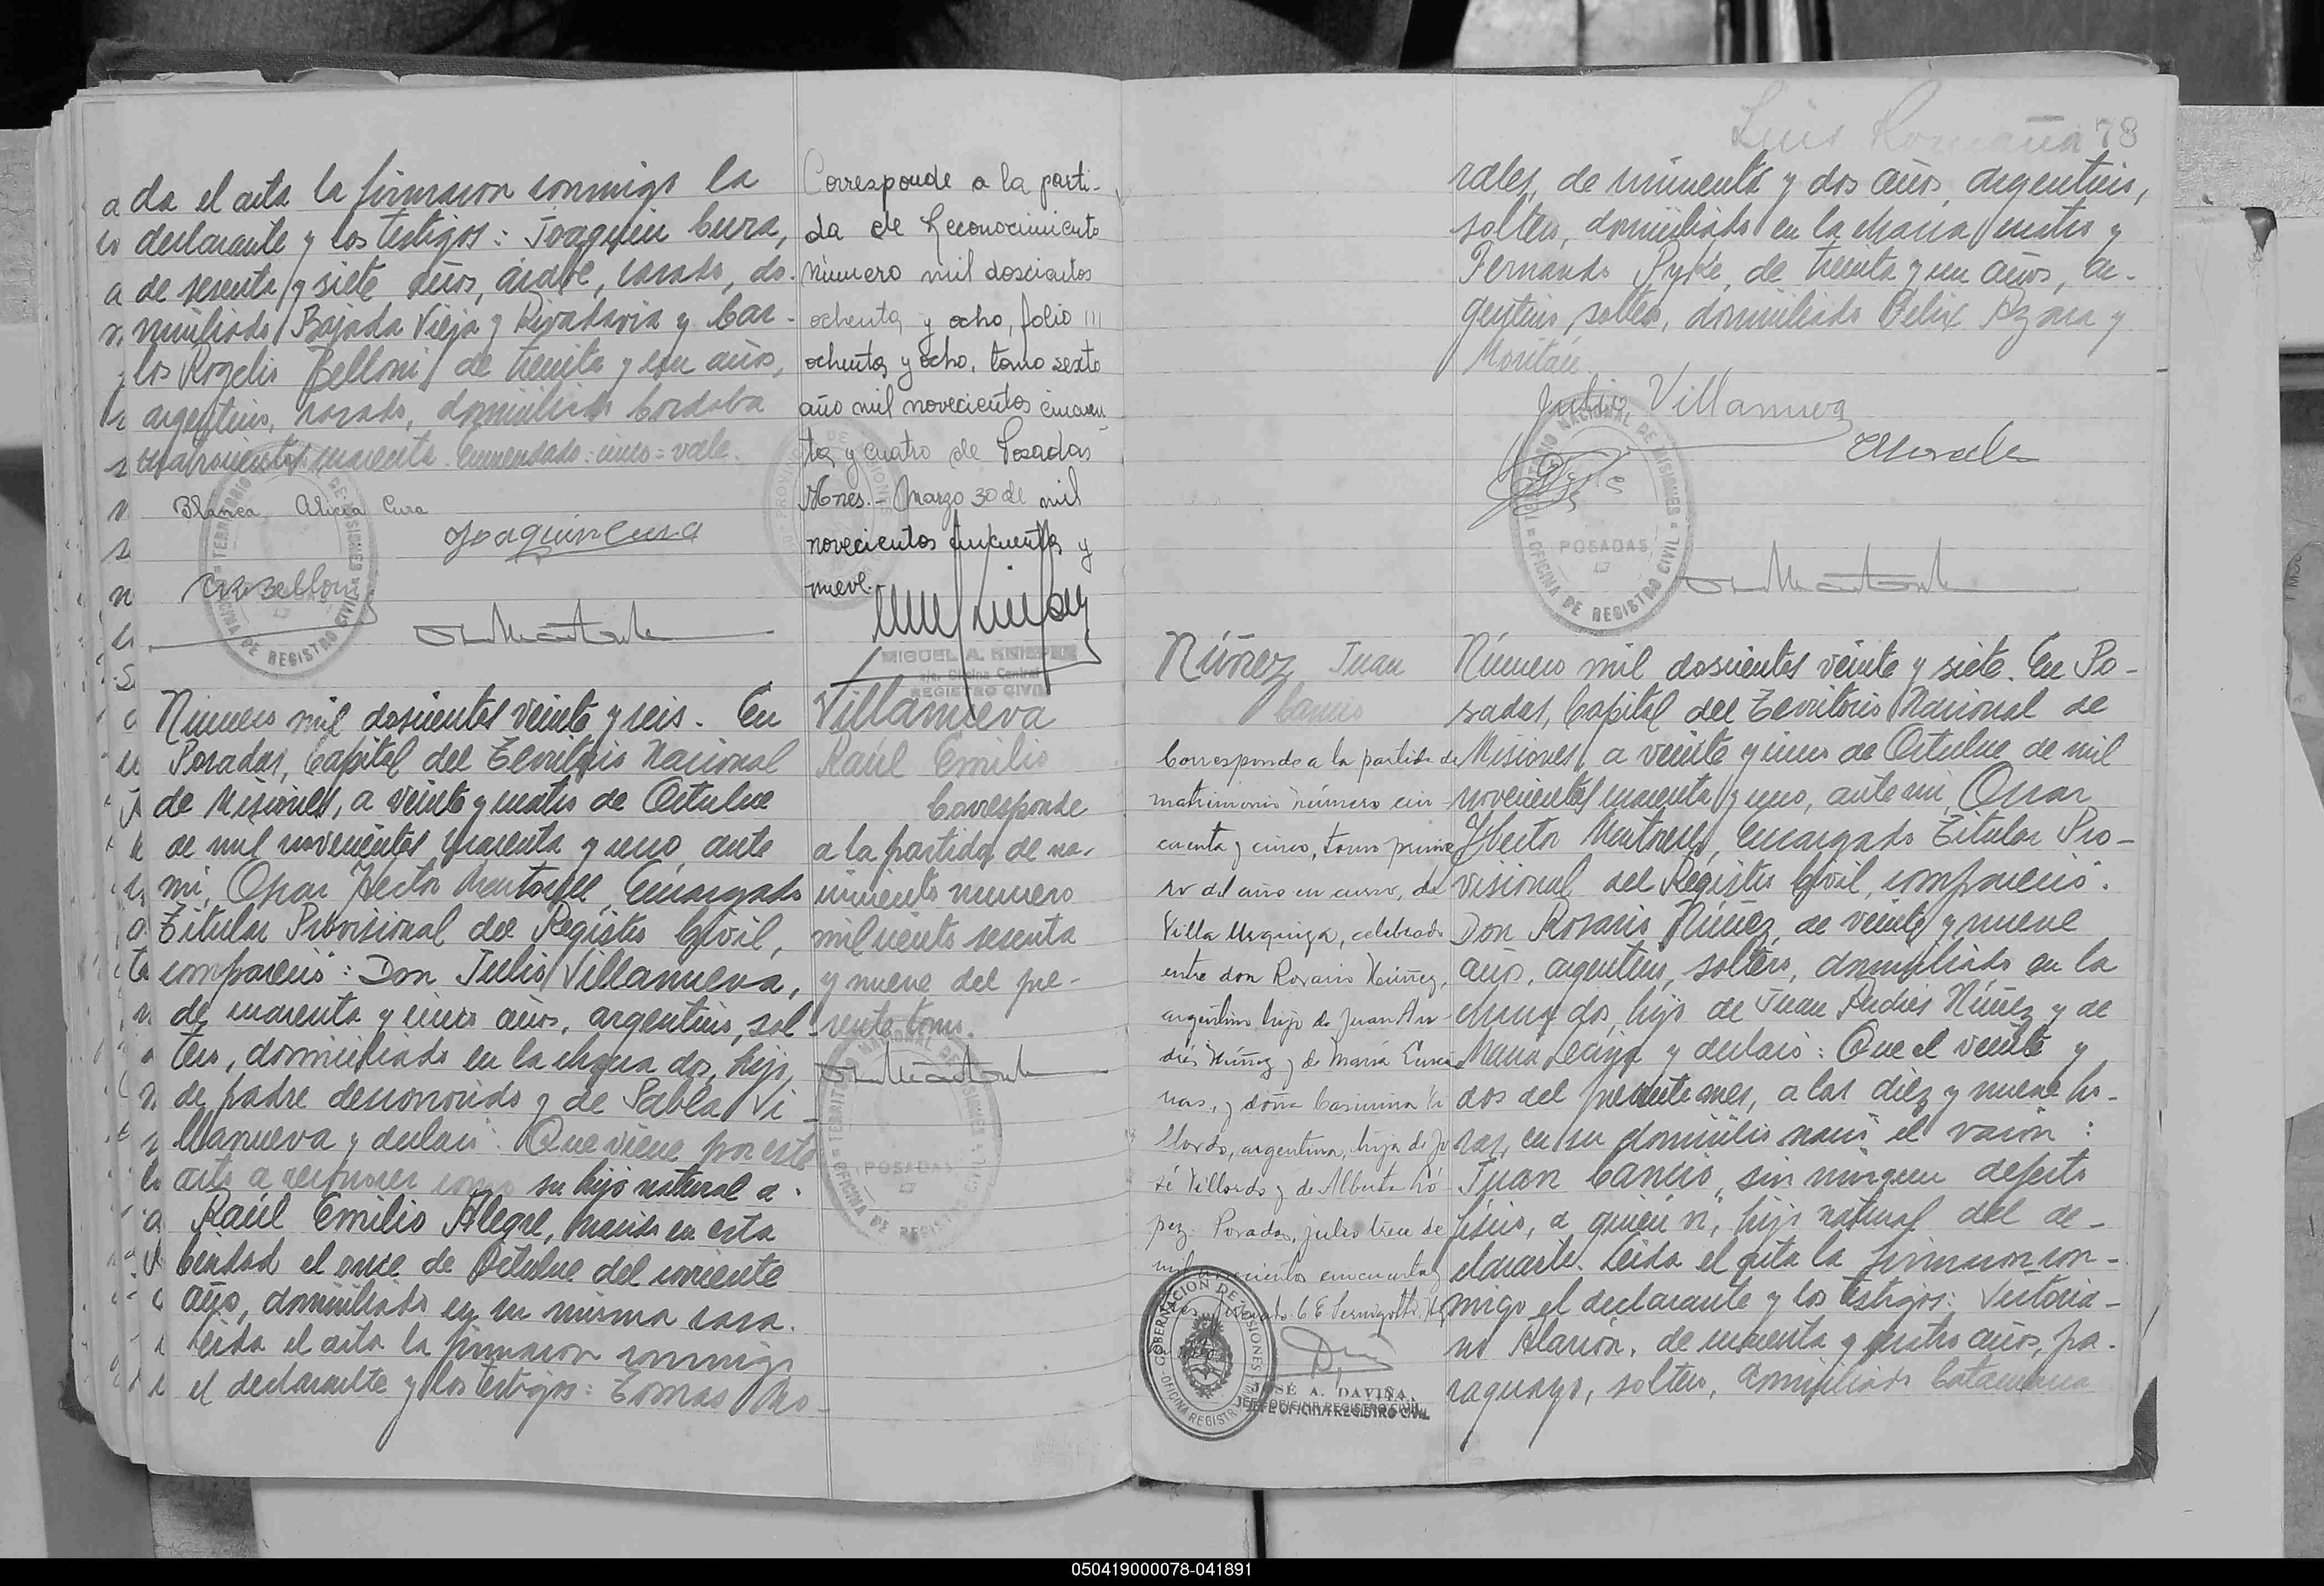 da el acta la firmaron conmigo la
declarante y los testigos: Joaquin Cura,
de sesenta y siete años, árabe, casado, do-
miciliado Bajada Vieja y Rivadavia y Car-
los Rogelio Belloni de treinta y un años,
argentino, casado, domiciliado Cordoba
cuatrocientos cuarenta. Enmendado: cinco = vale.
Blanca Alicia Cura
Joaquin Cura
CRBelloni
Corresponde a la parti-
da de Reconocimiento
número mil doscientos
ochenta y ocho, folio
ochenta y ocho, tomo sexto
año mil novecientos cincuen-
ta y cuatro de Posadas
Mnes.- Marzo 30 de mil
novecientos cincuenta y
nueve.
MIGUEL A. KNIEPEN
Oficina Central
REGISTRO CIVIL
Número mil doscientos veinte y seis. En
Posadas, Capital del Territorio Nacional
de Misiones, a veinte y cuatro de Octubre
de mil novecientos cuarenta y uno, ante
mi, Oscar Hector Martorell, Encargado
Titular Provisional del Registro Civil,
compareció: Don Julio Villanueva,
de cuarenta y cinco años, argentino, sol-
tero, domiciliado en la chacra dos, hijo
de padre desconocido y de Pabla Vi-
llanueva y declaró: Que viene por este
acto a reconocer como su hijo natural a
Raúl Emilio Alegre, nacido en esta
Ciudad el once de Octubre del corriente
año, domiciliado en su misma casa.
Leida el acta la firmaron conmigo
el declarante y los testigos: Tomas Mo-
Villanueva
Raúl Emilio
Corresponde
a la partida de na-
cimiento numero
mil ciento sesenta
y nueve del pre-
sente tomo.
TERRITORIO NACIONAL DE MISIONES
POSADAS
OFICINA DE REGISTRO CIVIL
Luis Romaña 78
rales, de cincuenta y dos años, argentino,
soltero, domiciliado en la chacra cuatro y
Fernando Pyke, de treinta y un años, ar-
gentino, soltero, domiciliado Felix Azara y
Julio Villanueva
TERRITORIO NACIONAL DE MISIONES
POSADAS
OFICINA DE REGISTRO CIVIL
Núñez Juan
Cancio
Corresponde a la partida de
matrimonio número cin
cuenta y cinco, tomo prime
ro del año en curso, de
Villa Urquiza, celebrado
entre don Rosario Núñez,
argentino hijo de Juan An-
drés Núñez y de María
y doña Casimira Vi
llordo, argentina, hija de Jo
sé Villordo y de Alberta Ló
pez. Posadas, julio trece de
mil novecientos cincuenta y
GOBERNACIÓN DE MISIONES
OFICINA REGISTRO
JOSÉ A. DAVIÑA
JEFE OFICINA REGISTRO CIVIL
Número mil doscientos veinte y siete. En Po-
sadas, Capital del Territorio Nacional de
Misiones, a veinte y cinco de Octubre de mil
novecientos cuarenta y uno, ante mi, Oscar
Hector Martorell, Encargado Titular Pro-
visional del Registro Civil, compareció:
Don Rosario Núñez, de veinte y nueve
años, argentino, soltero, domiciliado en la
chacra dos, hijo de Juan Andres Núñez y de
Maria y declaró: Que el veinte y
dos del presente mes, a las diez y nueve ho-
ras, en su domicilio nació el varón:
Juan Cancio, sin ningun defecto
fisico, a quien vi, hijo natural del de-
clarante. Leida el acta la firmaron con-
migo el declarante y los testigos: Victoria-
no Alarcón, de cuarenta y cuatro años, pa-
raguayo, soltero, domiciliado Catamarca
050419000078-041891